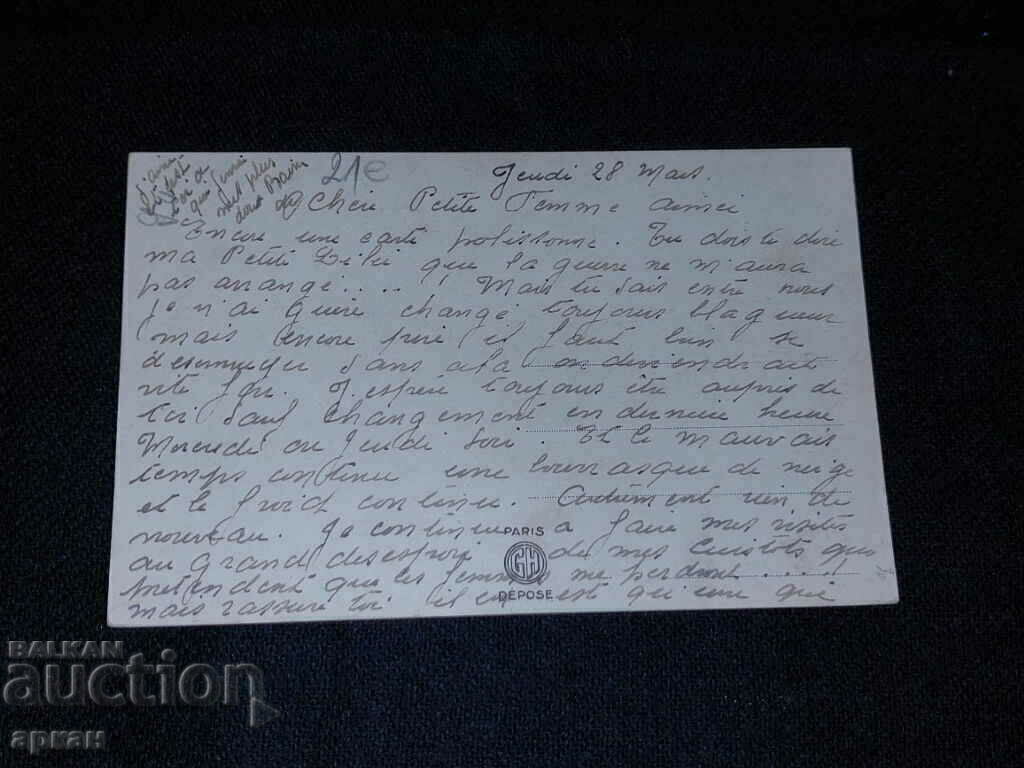 21€
Jeudi 28 Mars.
Cheri Petite Femme aimei
Encore une carte polissonne. Tu dois te dire
ma Petite que la guerre ne m'aura
pas arrangé.... Mais tu sais entre nous
Je n'ai Guère changé toujours blagueur
mais encore il faut bien se
sans cela on deviendrait
vite J'espère toujours être auprès de
toi sauf changement en dernière heure
Mercredi ou Jeudi soir. Et le mauvais
temps continue une bourrasque de neige
et le froid continue. Autrement rien de
nouveau. Je continue a faire mes visites
au Grand desespoir de mes Cuistots qui
pretendent que les femmes me perdront.....!!
mais rassure toi il en est qu'une que
j'aime
et c'est
que
plus
PARIS
DÉPOSÉ
BALKAN
auction
аркан